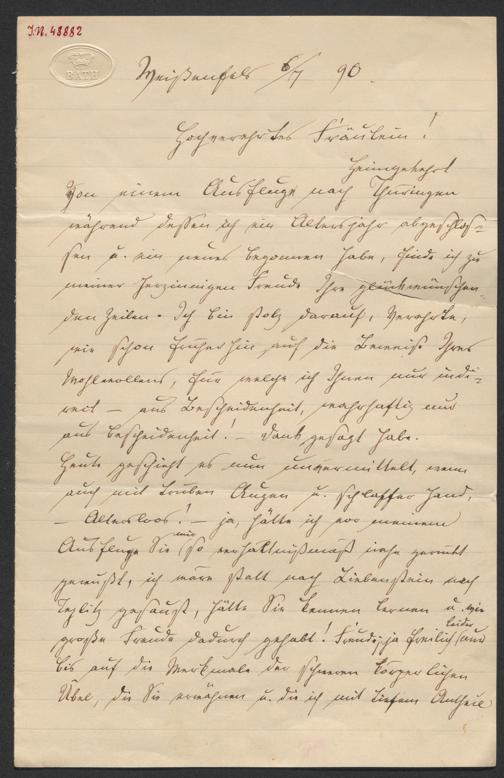 I.N. 48882
BATH
Weißenfels 6/7 90.
Hochverehrtes Fräulein!
Heimgekehrt
von einem Ausfluge nach Thüringen
während dessen ich ein Altersjahr abgeschlos-
sen u. ein neues begonnen habe, finde ich zu
meiner herzinnigen Freude Ihre glückwünschen-
den Zeilen. Ich bin stolz darauf, Verehrte,
wie schon früherhin auf die Beweise Ihres
Wohlwollens, für welche ich Ihnen nur indi-
rect — aus Bescheidenheit, wahrhaftig nur
aus Bescheidenheit! — Dank gesagt habe.
Heute geschieht es nun unvermittelt, wenn
auch mit trüben Augen u. schlaffer Hand,
— Altersloos! — ja, hätte ich vor meinem
Ausfluge Sie mir so verhältnißmäß nahe gerückt
gewußt, ich wäre statt nach Liebenstein nach
Teplitz gesaust, hätte Sie kennen lernen u. wie
große Freude dadurch gehabt! Freude, ja freilich leider nur
bis auf die Merkmale der schweren körperlichen
Übel, die Sie erwähnen u. die ich mit tiefem Antheil